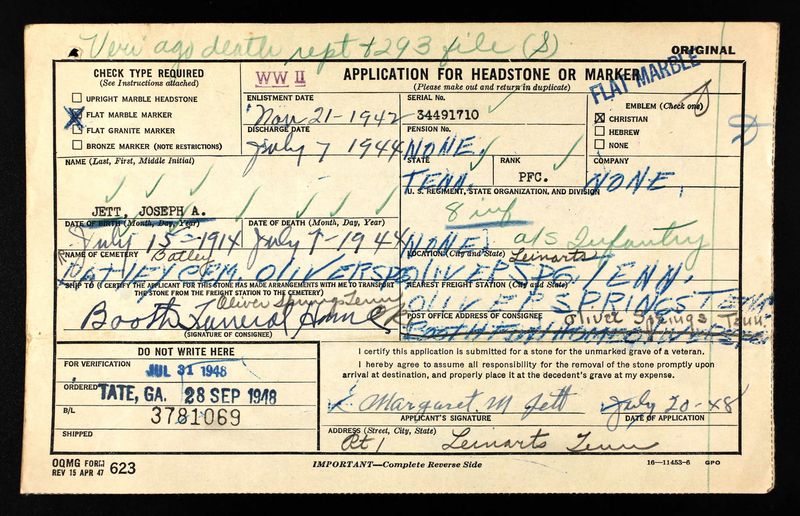 Veri ago death rept + 293 file (S)
ORIGINAL
CHECK TYPE REQUIRED
(See Instructions attached)
WW II
APPLICATION FOR HEADSTONE OR MARKER
(Please make out and return in duplicate)
FLAT MARBLE
UPRIGHT MARBLE HEADSTONE
X FLAT MARBLE MARKER
FLAT GRANITE MARKER
BRONZE MARKER (NOTE RESTRICTIONS)
ENLISTMENT DATE
Nov 21-1942
DISCHARGE DATE
July 7 1944
SERIAL No.
34491710
PENSION No.
NONE.
EMBLEM (Check one)
X CHRISTIAN
HEBREW
NONE
NAME (Last, First, Middle Initial)
JETT, JOSEPH A.
STATE
TENN.
RANK
PFC.
COMPANY
NONE.
U. S. REGIMENT, STATE ORGANIZATION, AND DIVISION
8 inf
(NONE) a/s Infantry
DATE OF BIRTH (Month, Day, Year)
July 15-1914
DATE OF DEATH (Month, Day, Year)
July 7-1944
NAME OF CEMETERY
Batley
BATLEY CEM. OLIVERSPG
LOCATION (City and State)
Leinarts
OLIVERSPG. TENN.
SHIP TO (I CERTIFY THE APPLICANT FOR THIS STONE HAS MADE ARRANGEMENTS WITH ME TO TRANSPORT THE STONE FROM THE FREIGHT STATION TO THE CEMETERY)
Oliver Springs Tenn
Booth Funeral Home
(SIGNATURE OF CONSIGNEE)
NEAREST FREIGHT STATION (City and State)
OLIVER SPRINGS TENN
POST OFFICE ADDRESS OF CONSIGNEE
Oliver Springs, Tenn.
DO NOT WRITE HERE
FOR VERIFICATION
JUL 31 1948
ORDERED
TATE, GA. 28 SEP 1948
B/L
3781069
SHIPPED
I certify this application is submitted for a stone for the unmarked grave of a veteran.
I hereby agree to assume all responsibility for the removal of the stone promptly upon arrival at destination, and properly place it at the decedent's grave at my expense.
Margaret M Jett
July 20-48
APPLICANT'S SIGNATURE
DATE OF APPLICATION
ADDRESS (Street, City, State)
Rt 1 Leinarts Tenn
OQMG FORM
REV 15 APR 47 623
IMPORTANT—Complete Reverse Side
16—11453-6 GPO